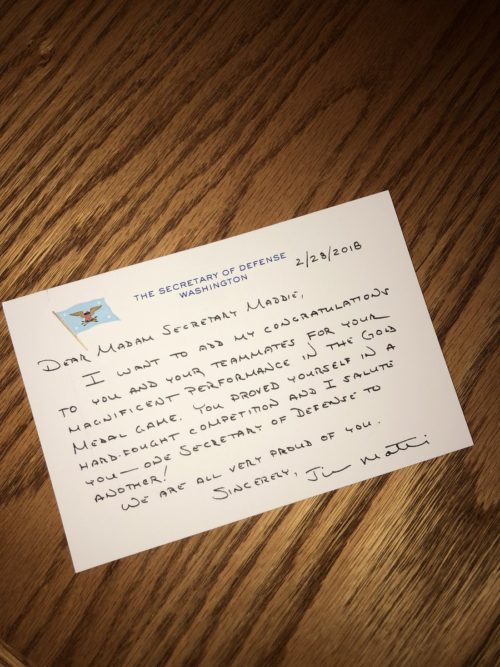 THE SECRETARY OF DEFENSE
WASHINGTON
2/28/2018
DEAR MADAM SECRETARY MADDIE,
I WANT TO ADD MY CONGRATULATIONS
TO YOU AND YOUR TEAMMATES FOR YOUR
MAGNIFICENT PERFORMANCE IN THE GOLD
MEDAL GAME. YOU PROVED YOURSELF IN A
HARD-FOUGHT COMPETITION AND I SALUTE
YOU — ONE SECRETARY OF DEFENSE TO
ANOTHER!
WE ARE ALL VERY PROUD OF YOU.
SINCERELY, Jim Mattis